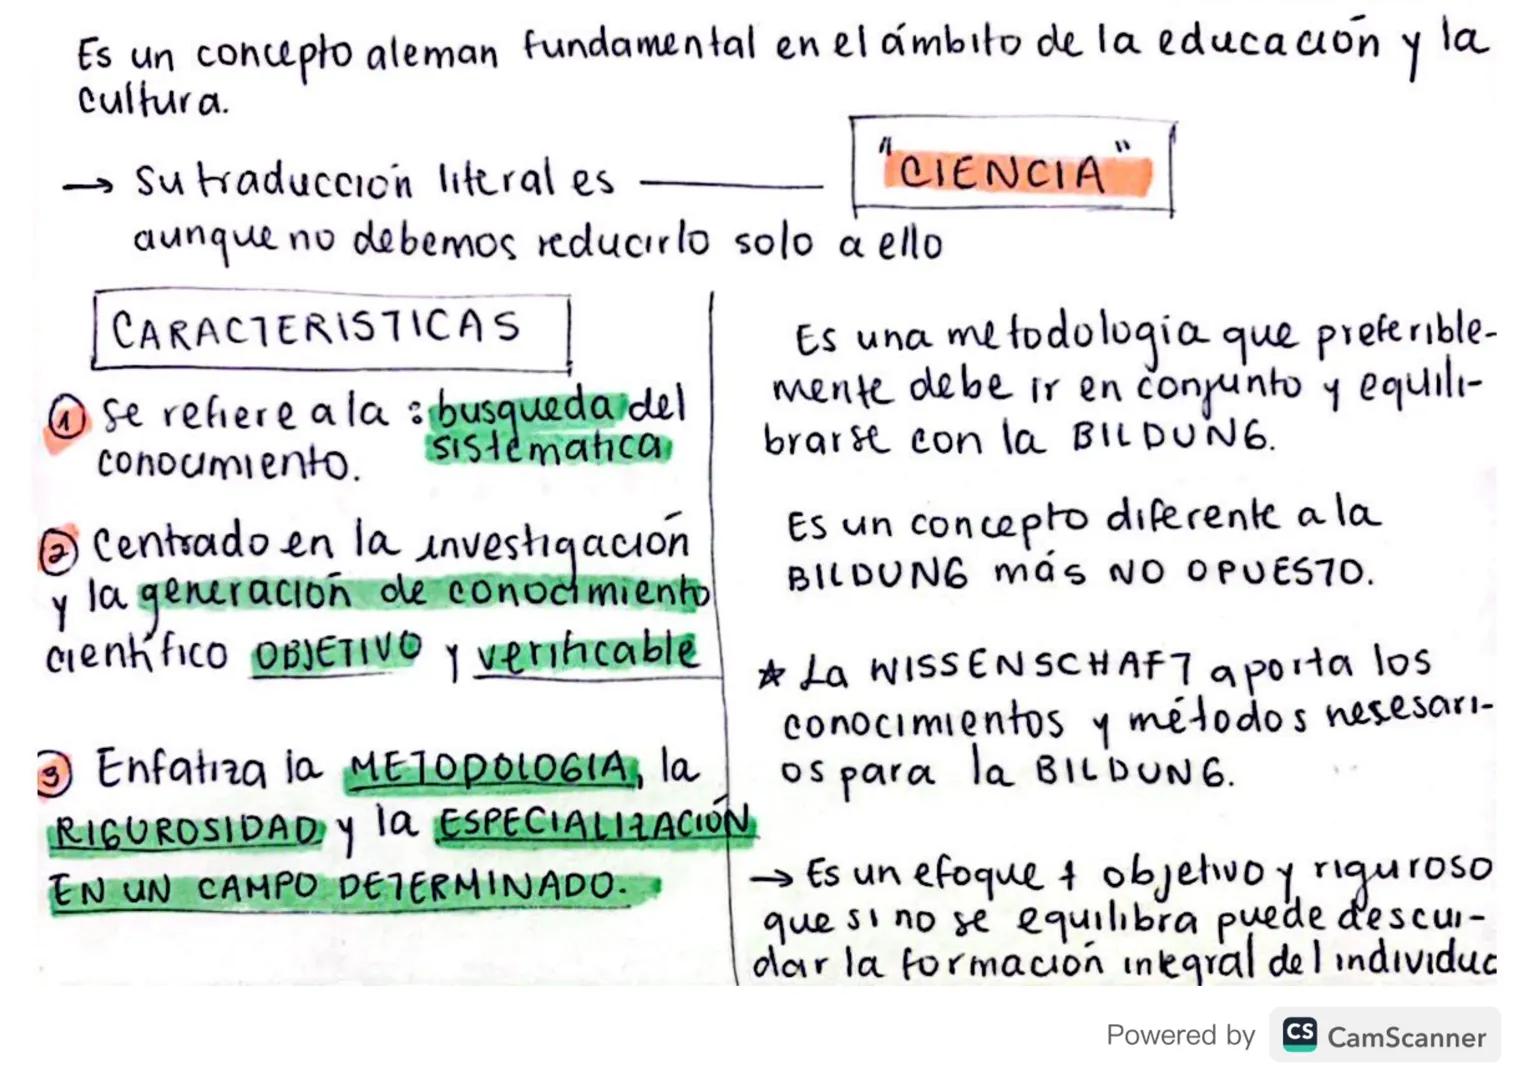 Es un concepto aleman fundamental en el ámbito de la educación y la
cultura.
→ Su traducción literal es — "CIENCIA"
aunque no debemos reducirlo solo a ello
CARACTERISTICAS
① Se refiere a la : busqueda del
sistematica
conocimiento.
② Centrado en la investigación
y la generación de conocimiento
científico OBJETIVO y verificable
③ Enfatiza la METODOLOGIA, la
RIGUROSIDAD y la ESPECIALIZACIÓN
EN UN CAMPO DETERMINADO.
Es una metodologia que preferible-
mente debe ir en conjunto y equili-
brarse con la BILDUNG.
Es un concepto diferente a la
BILDUNG más NO OPUESTO.
☆ La WISSENSCHAFT aporta los
conocimientos y métodos nesesari-
os para la BILDUNG.
→ Es un efoque + objetivo y riguroso
que si no se equilibra puede descui-
dar la formación integral del individuo
Powered by CS CamScanner